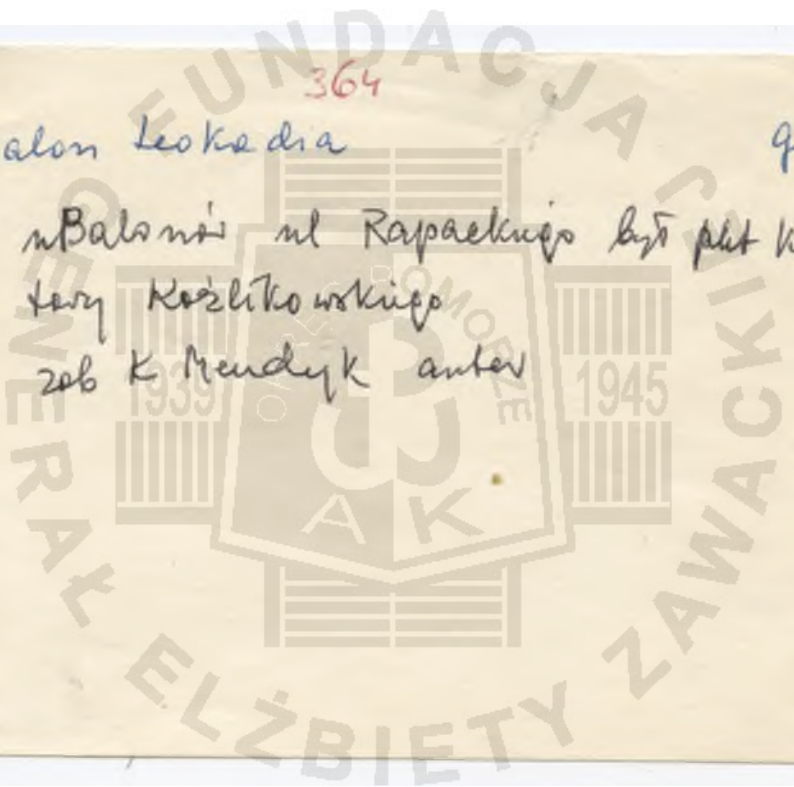 364
alon Leokadia
u Balonów ul Rapackiego był pkt K
Koźlikowskiego
zob K Mendyk autor
FUNDACJA GENERAŁ ELŻBIETY ZAWACKIEJ
OKRĘG POMORZE
1939 1945
AK